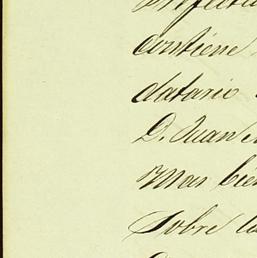 contiene
datario
D. Juan
Mas bien
Sobre la